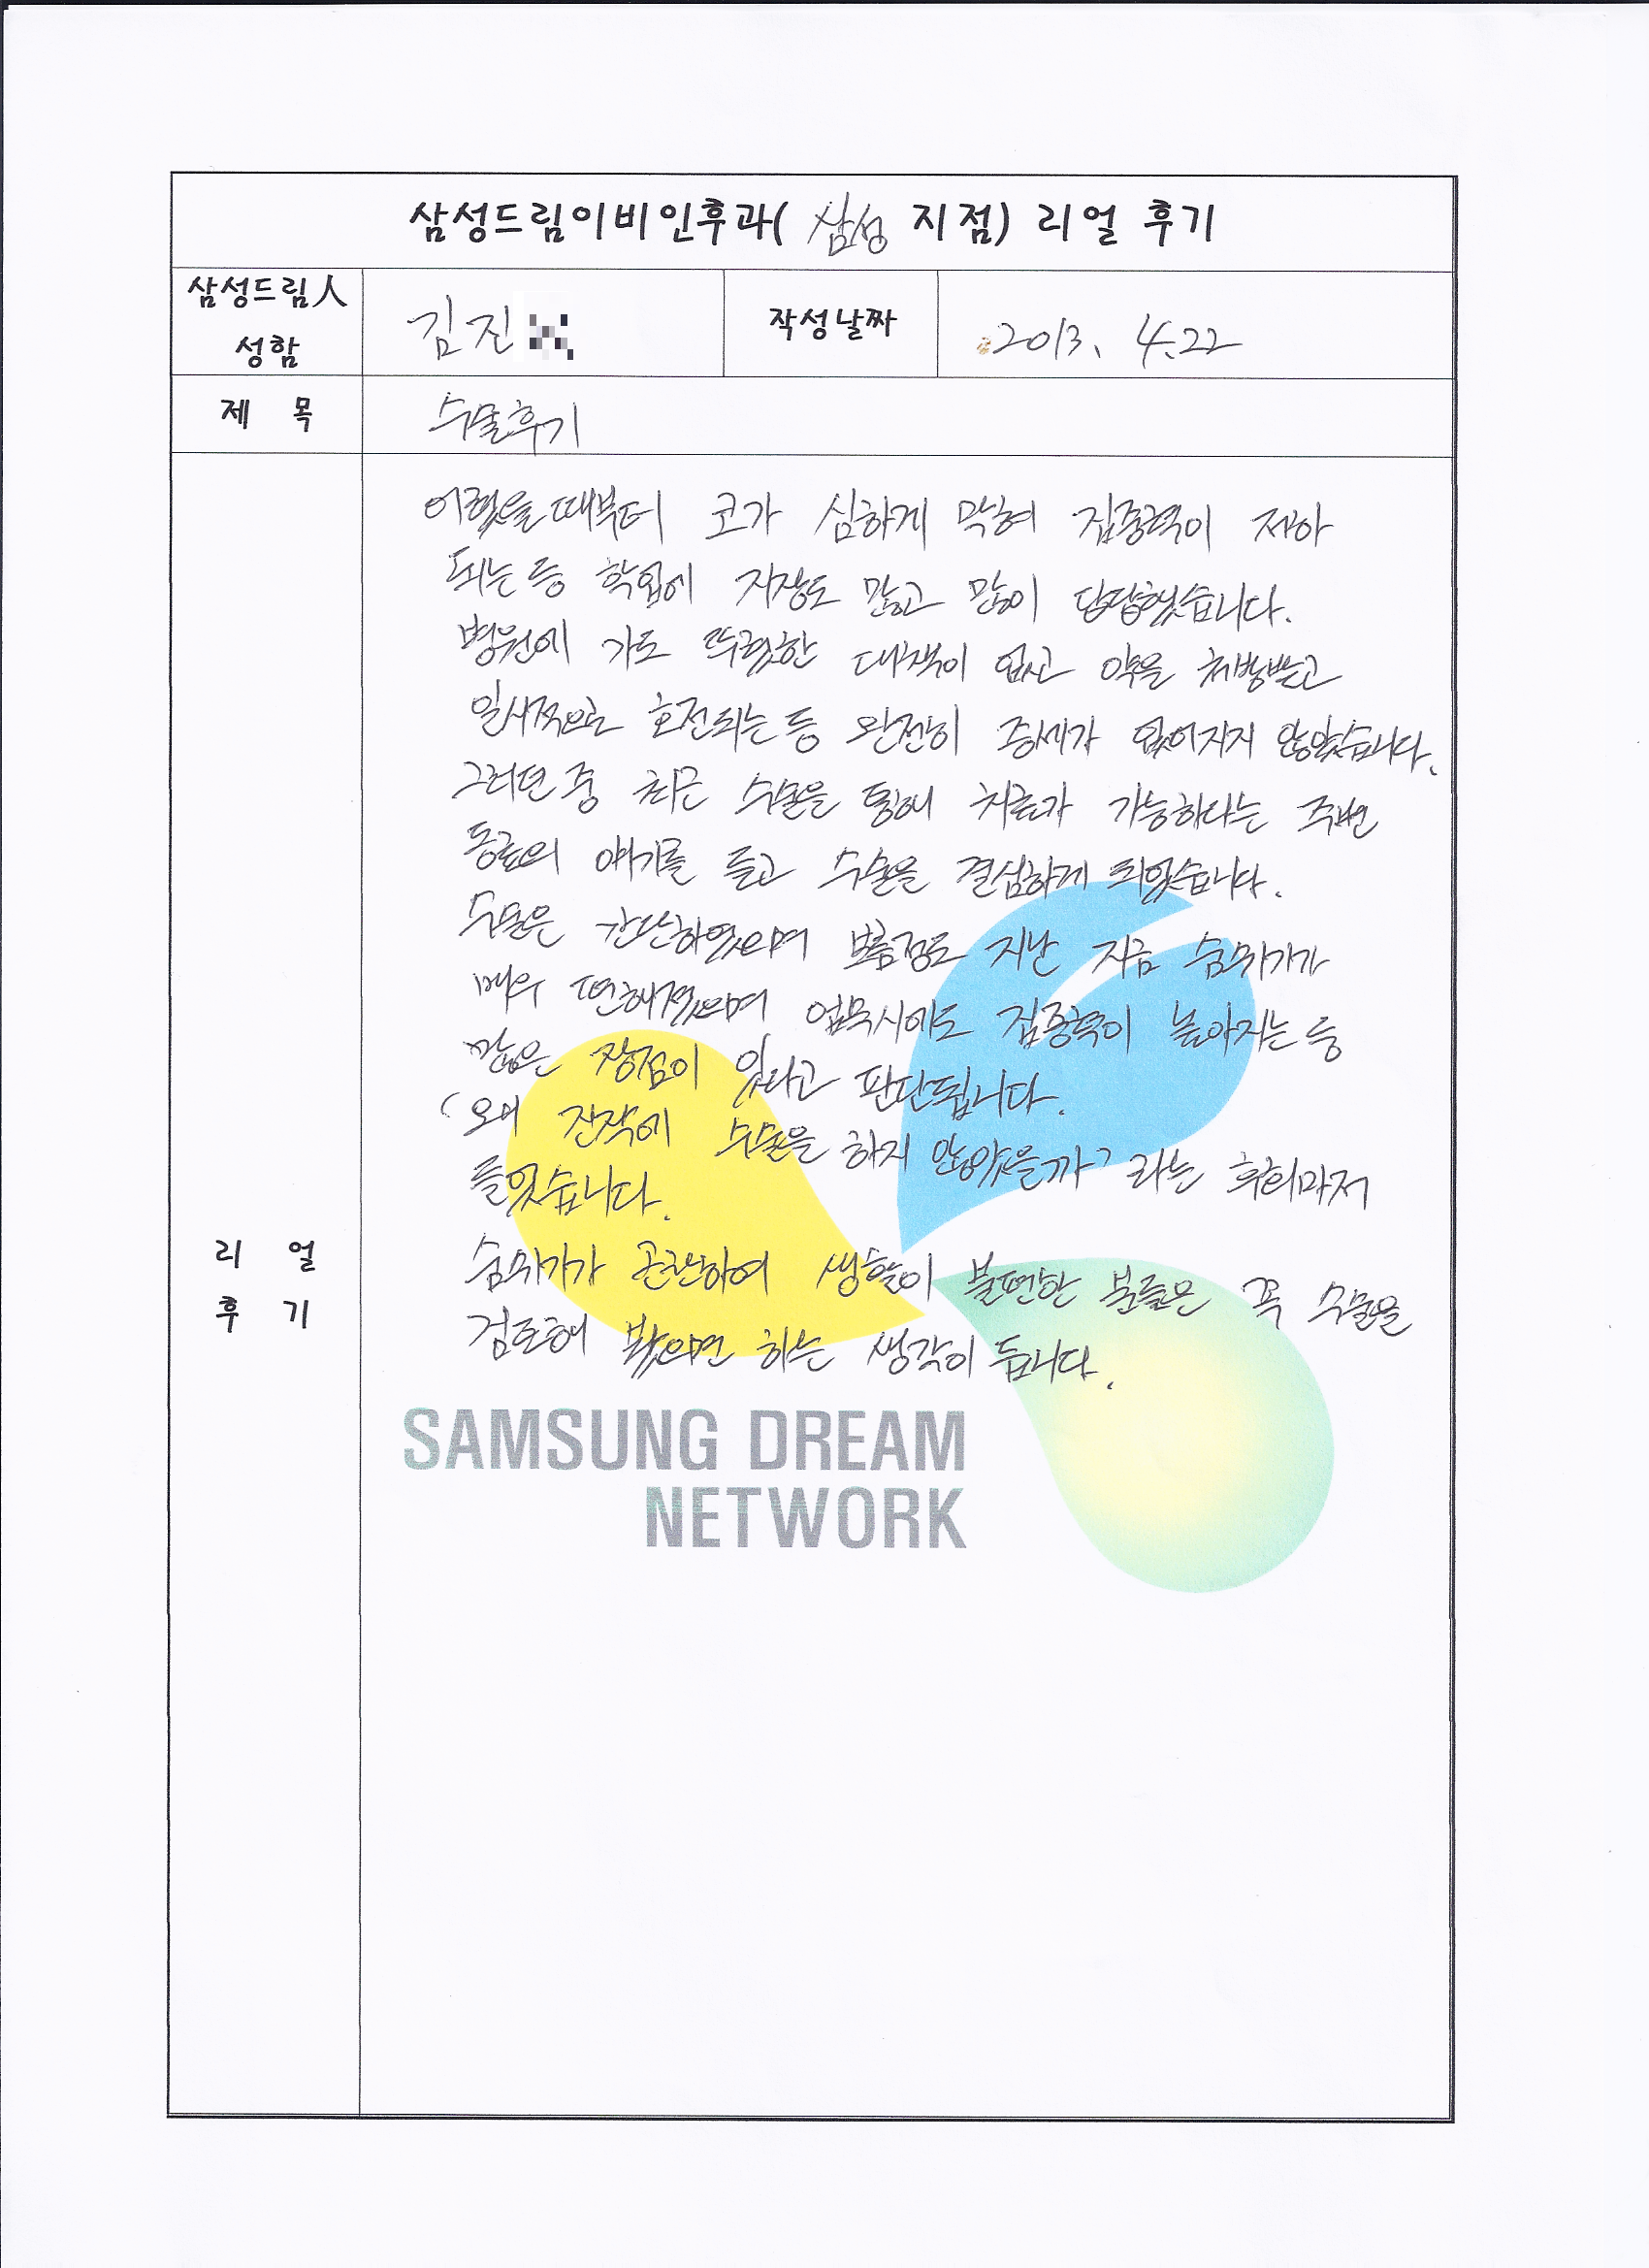 삼성드림이비인후과( 삼성 지점) 리얼 후기
삼성드림人
성함
김진
작성날짜
2013. 4.22
제 목
수술후기
어렸을때부터 코가 심하게 막혀 집중력이 저하
되는 등 학업에 지장도 많고 많이 답답했습니다.
병원에 가도 뚜렷한 대책이 없고 약을 처방받고
일시적으로 호전되는 등 완전히 증세가 없어지지 않았습니다.
그러던 중 최근 수술을 통해 치료가 가능하다는 주변
동료의 얘기를 듣고 수술을 결심하게 되었습니다.
수술은 간단하였으며 보름정도 지난 지금 숨쉬기가
매우 편해졌으며 업무시에도 집중력이 높아지는 등
많은 장점이 있다고 판단됩니다.
'왜 진작에 수술을 하지 않았을까' 라는 후회마저
들었습니다.
숨쉬기가 곤란하여 생활이 불편한 분들은 꼭 수술을
검토해 봤으면 하는 생각이 듭니다.
리 얼
후 기
SAMSUNG DREAM
NETWORK